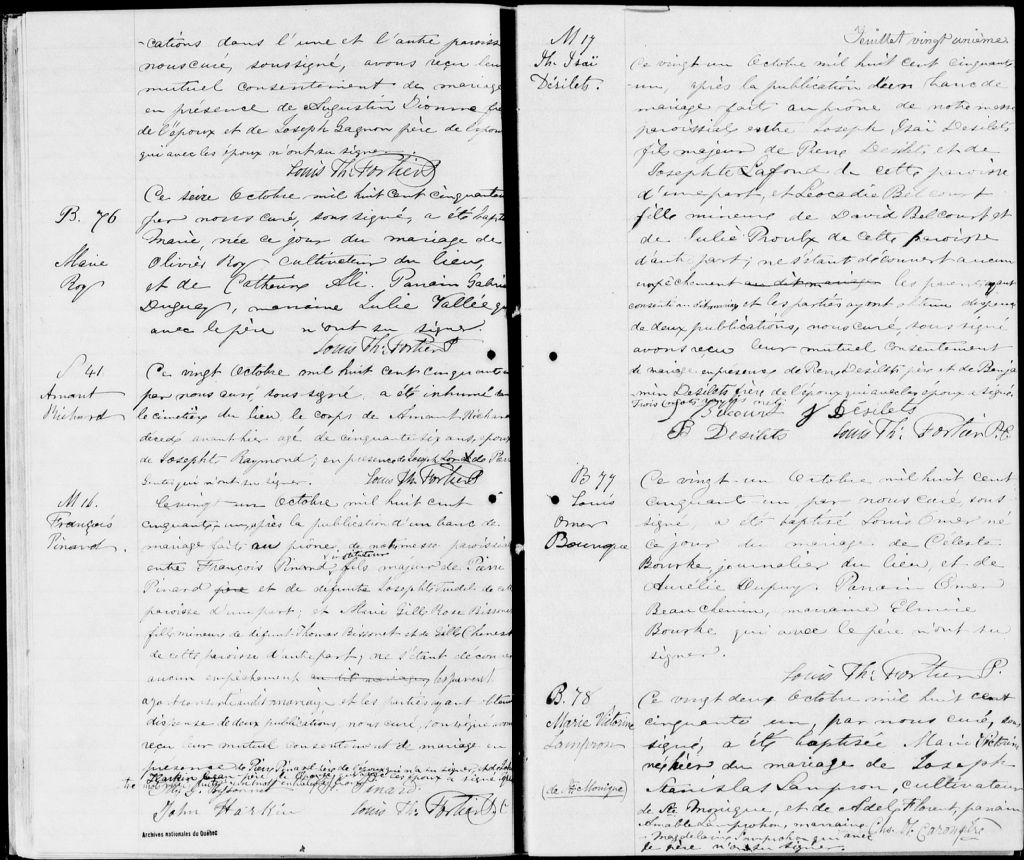 -cations dans l'une et l'autre paroisse
nous curé, soussigné, avons reçu leur
mutuel consentement de mariage
en présence de Augustin Dionne
de l'époux et de Joseph Gagnon père de l'épouse
qui avec les époux n'ont su signer.
Louis Th. Fortier P
B. 76
Marie
Roy
Ce seize Octobre mil huit cent cinquante
par nous curé, sous signé, a été
Marie, née ce jour du mariage de
Olivier Roy cultivateur du lieu,
et de Catherine Parain
Duguay, maraine Julie Vallée qui
avec le père n'ont su signer.
Louis Th. Fortier P
S 41
Amant
Richard
Ce vingt Octobre mil huit cent cinquante
par nous curé, sous signé, a été inhumé dans
le cimetière du lieu le corps de Amant Richard
décédé avant hier agé de cinquante six ans, époux
de Josephte Raymond; en presence de Joseph
qui n'ont su signer. Louis Th. Fortier P
M 16.
François
Pinard.
Ce vingt un Octobre mil huit cent
cinquante-un, après la publication d'un banc de
mariage faite au prône de notre messe paroissiale
instituteur
entre François Pinard, fils majeur de Pierre
Pinard et de défunte Josephte Trudel de cette
paroisse d'une part; et Marie Gills Rose Bissonet
fille mineure de défunt Thomas Bissonet et de Gills Chenest
de cette paroisse d'autre part; ne s'étant découvert
aucun empêchement au dit mariage, les parents
ayant consenti au dit mariage et les parties ayant obtenu
dispense de deux publications, nous curé, soussigné, avons
reçu leur mutuel consentement de mariage en
présence de Pierre Pinard
Pinard
John Harkin Louis Th: Fortier P. C
Archives nationales du Québec
Feuillet vingt unième
M 17
Jh. Isaï
Désilets.
Ce vingt un Octobre mil huit cent cinquante
-un, après la publication d'un banc de
mariage fait au prône de notre messe
paroissiale entre Joseph Isaï Desilets
fils majeur de Pierre Desilets et de
Josephte Lafond de cette paroisse
d'une part, et Léocadie Belcourt
fille mineure de David Belcourt et
de Julie Proulx de cette paroisse
d'autre part; ne s'étant découvert aucun
empêchement au dit mariage les parens ayant
consenti au dit mariage et les parties ayant obtenu dispense
de deux publications, nous curé, sous signé
avons reçu leur mutuel consentement
de mariage en présence de Pierre Desilets père et de Benja
min Desilets frère de l'époux qui avec les époux a signé.
J Desilets
Desilets Louis Th: Fortier P. C.
B 77
Louis
Omer
Bourque
Ce vingt-un Octobre mil huit cent
cinquante un par nous curé sous
signé, a été baptisé Louis Omer né
ce jour du mariage de Céleste
Bourke, journalier du lieu, et de
Aurélie Dupuy. Parain Omer
Beauchemin, maraine Elmire
Bourke qui avec le père n'ont su
signer.
Louis Th: Fortier P.
B. 78
Marie Vitorine
Lampron
(de Ste Monique)
Ce vingt deux Octobre mil huit cent
cinquante un, par nous curé, sous
signé, a été baptisée Marie Victorine
née hier du mariage de Joseph
Stanislas Lampron, cultivateur
de Ste Monique, et de Adele Florent, parain
Aimable Lamprohon, marraine
Magdelaine Lamprohon qui avec
le père n'ont su signer.